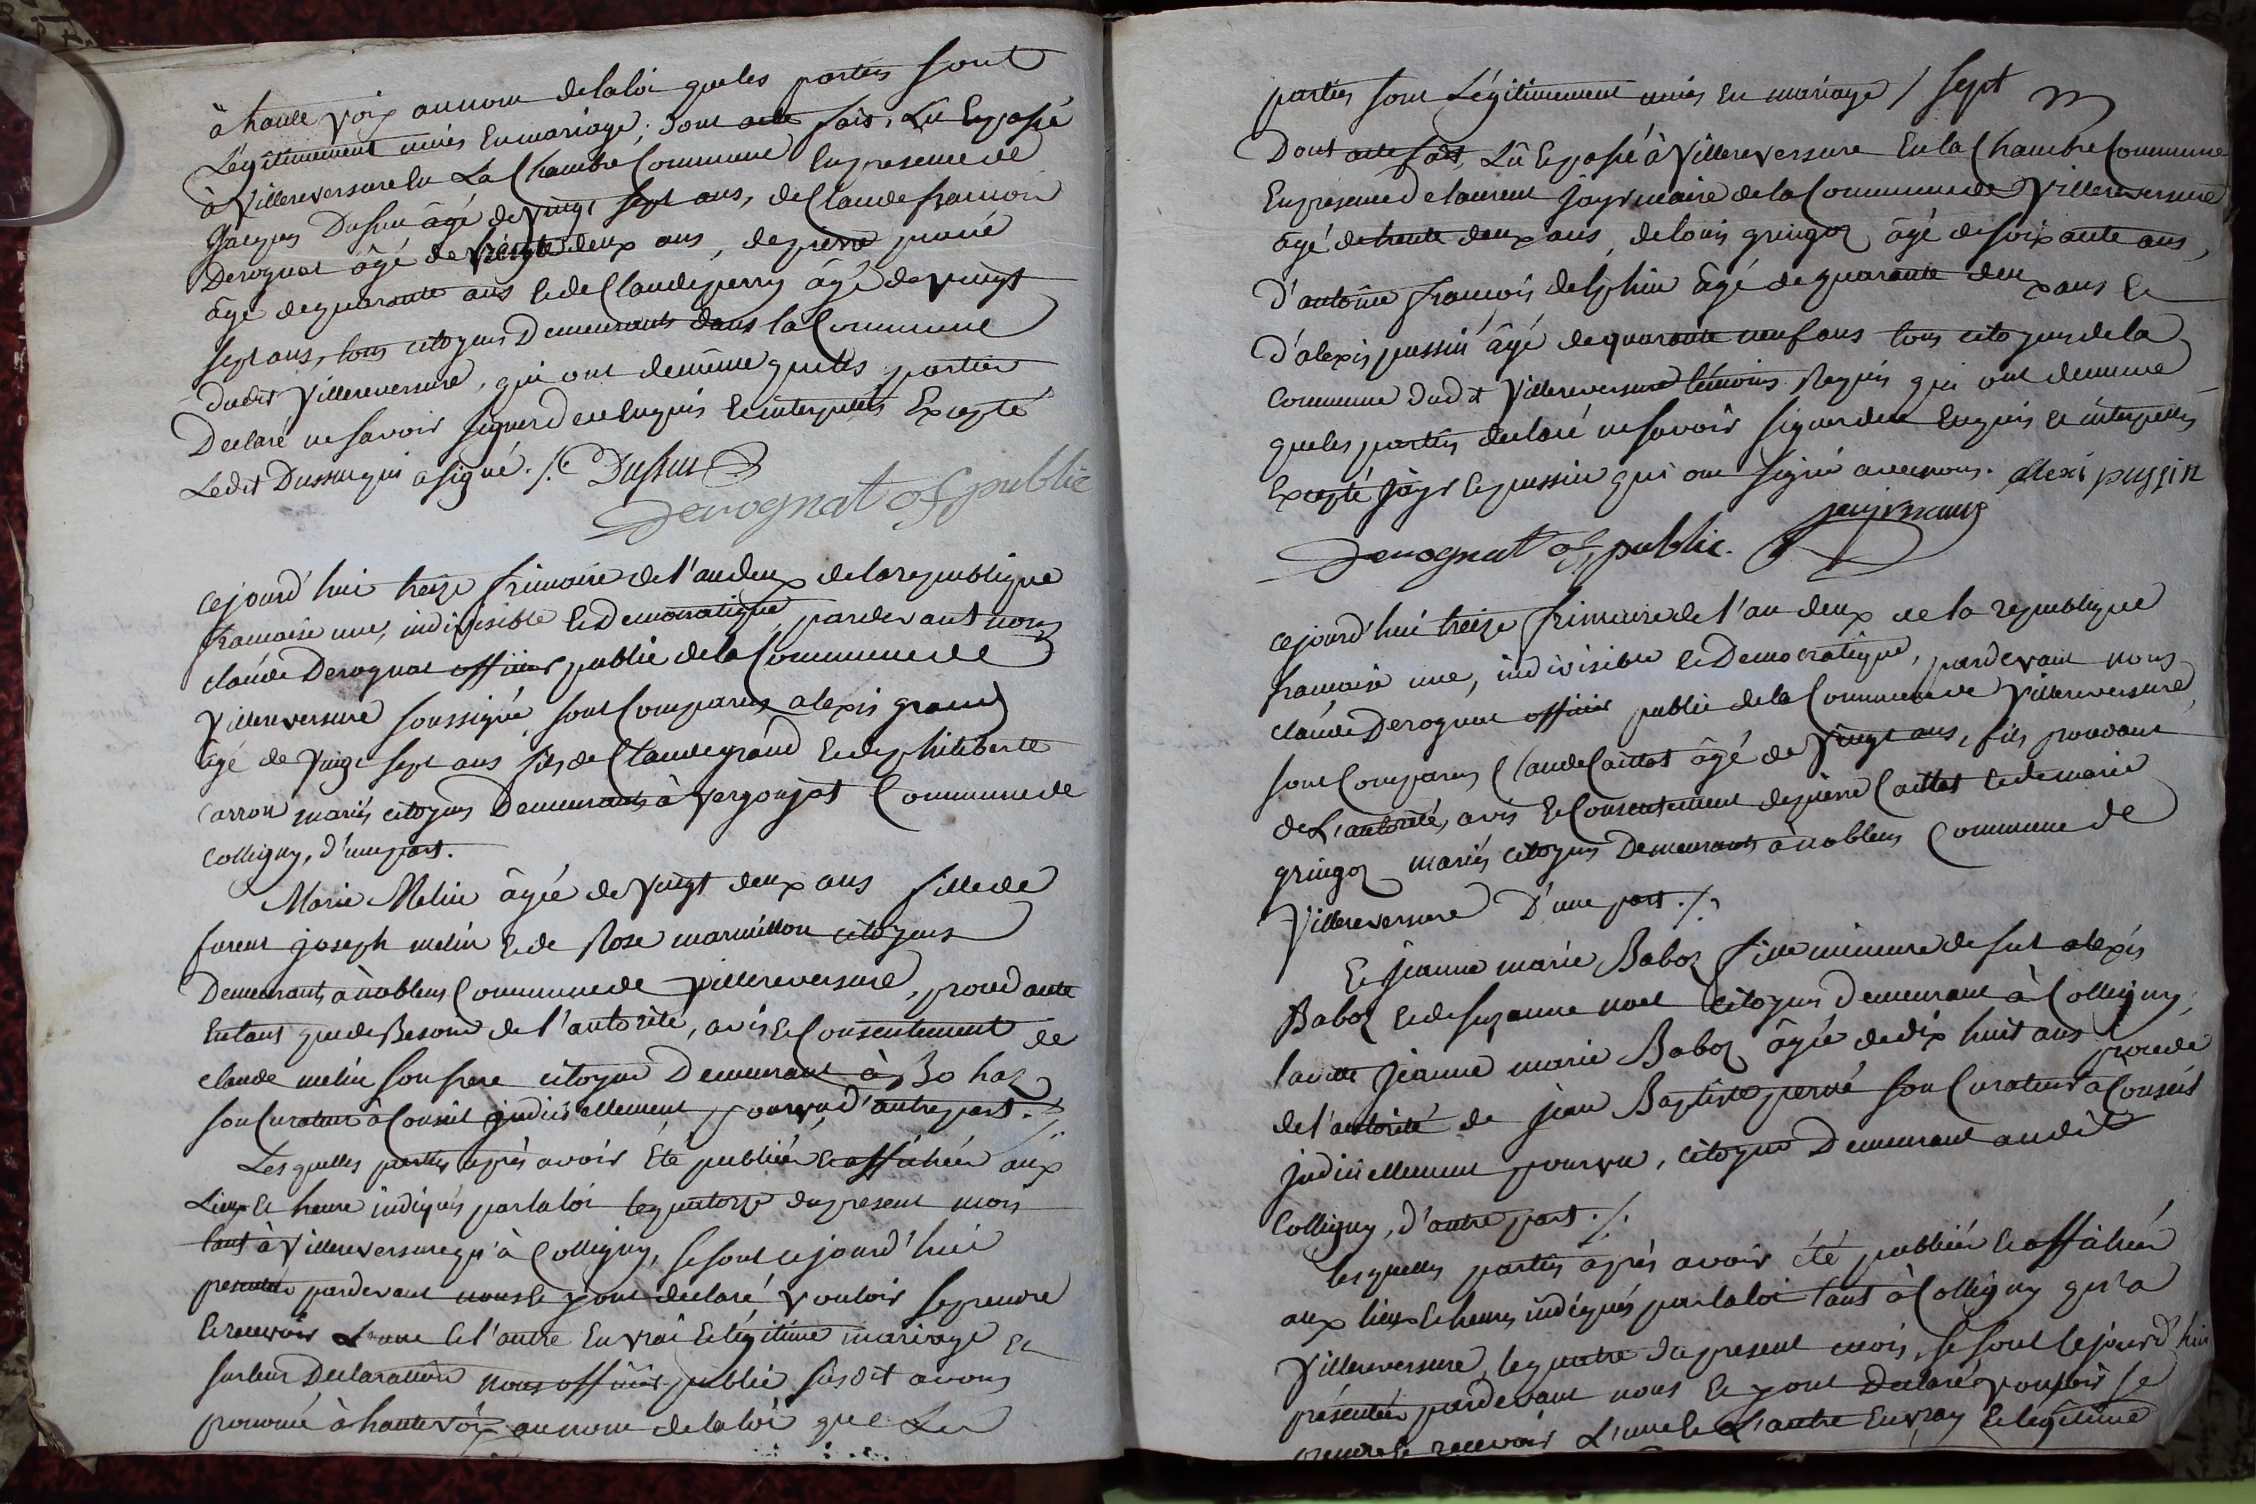 à haute voix au nom de la loi que les parties sont
Légitimement unies En mariage; Dont acte fait, Lu Exposé
à Villereversure En La Chambre Commune En presence de
Jacques Dussur âgé de Vingt sept ans, de Claude francois
Derognat âgé de deux ans, de pierre
âgé de quarante ans Et de Claude perry âgé de vingt
sept ans, tous citoyens Demeurants dans la Commune
dudit Villereversure, qui ont de même que les parties
Declaré ne savoir signer de ce Enquis et interpellés Excepté
Ledit Dussur qui a signé ./. Dussur
Derognat of public
Cejourd'hui treize frimaire de l'an deux de la republique
francaise une, indivisible Et Democratique, pardevant nous
claude Derognat officier public de la Commune de
Villereversure soussigné, sont Comparus alexis grand
âgé de Vingt sept ans fils de Claude grand Et de philiberte
Carron mariés citoyens Demeurants à Vergonjat Commune de
Colligny, d'une part.
Marie Melin âgée de Vingt deux ans fille de
fureur joseph melin Et de Rose marmillon citoyens
Demeurants à noblens Commune de Villereversure, procedante
En tant que de Besoin de l'autorité, avis Et Consentement de
claude melin son frere citoyen Demeurant à Bohaz
son Curateur à Conseil judiciellement pourvu d'autre part ./.
Les quelles parties après avoir Eté publiées Et affichées aux
Lieux Et heure indiqués par la loi le quatorze du present mois
tant à Villereversure qu'à Colligny, se sont cejourd'hui
presentées pardevant nous Et y ont declaré vouloir se prendre
Et recevoir L'une Et l'autre En vrai Et légitime mariage Et
sur leur Declaration nous officier public susdit avons
prononcé à haute voix au nom de la loi que Les
parties sont Légitimement unies En mariage / sept
Dont acte fait, Lû Exposé à Villereversure En la Chambre Commune
En présence de laurent Jayr maire de la Commune de Villereversure
âgé de trente deux ans, de louis gringoz âgé de soixante ans,
d'antoine françois delphin âgé de quarante deux ans Et
d'alexis pussin âgé de quarante neuf ans tous citoyens de la
Commune dudit Villereversure témoins Requis qui ont de meme
que les parties declaré ne savoir signer de ce Enquis et interpellés
Excepté Jayr Et pussin qui ont signé avec nous. Alexi pussin
Derognat of public.
Cejourd'hui treize frimaire de l'an deux de la republique
francaise une, indivisible Et Democratique, pardevant nous
claude Derognat officier public de la Commune de Villereversure
sont Comparus Claude Caillat âgé de Vingt ans, fils procedant
de L'autorité, avis Et Consentement de pierre Caillat Et de marie
gringoz mariés citoyens Demeurants à noblens Commune de
Villereversure D'une part ./.
Et Jeanne marie Baboz fille mineure de fut alexis
Baboz Et de suzanne noel citoyens Demeurant à Colligny,
ladite Jeanne marie Baboz âgée de dix huit ans procede
de l'autorité de jean Baptiste perné son Curateur à Conseil
judiciellement pourvu, citoyen Demeurant audit
Colligny, d'autre part ./.
les quelles parties après avoir été publiées Et affichées
aux lieux Et heures indiqués par la loi tant à Colligny qu'à
Villereversure, le quatre du present mois, se sont Cejourd'hui
présentées pardevant nous Et y ont Declaré vouloir se
prendre Et recevoir L'une Et L'autre En vray Et légitime